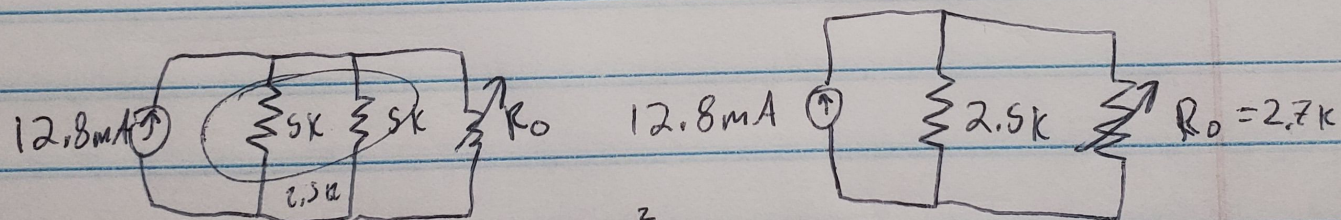 12.8mA 5K 5K R₀ 12.8mA 2.5K R₀ = 2.7K
2